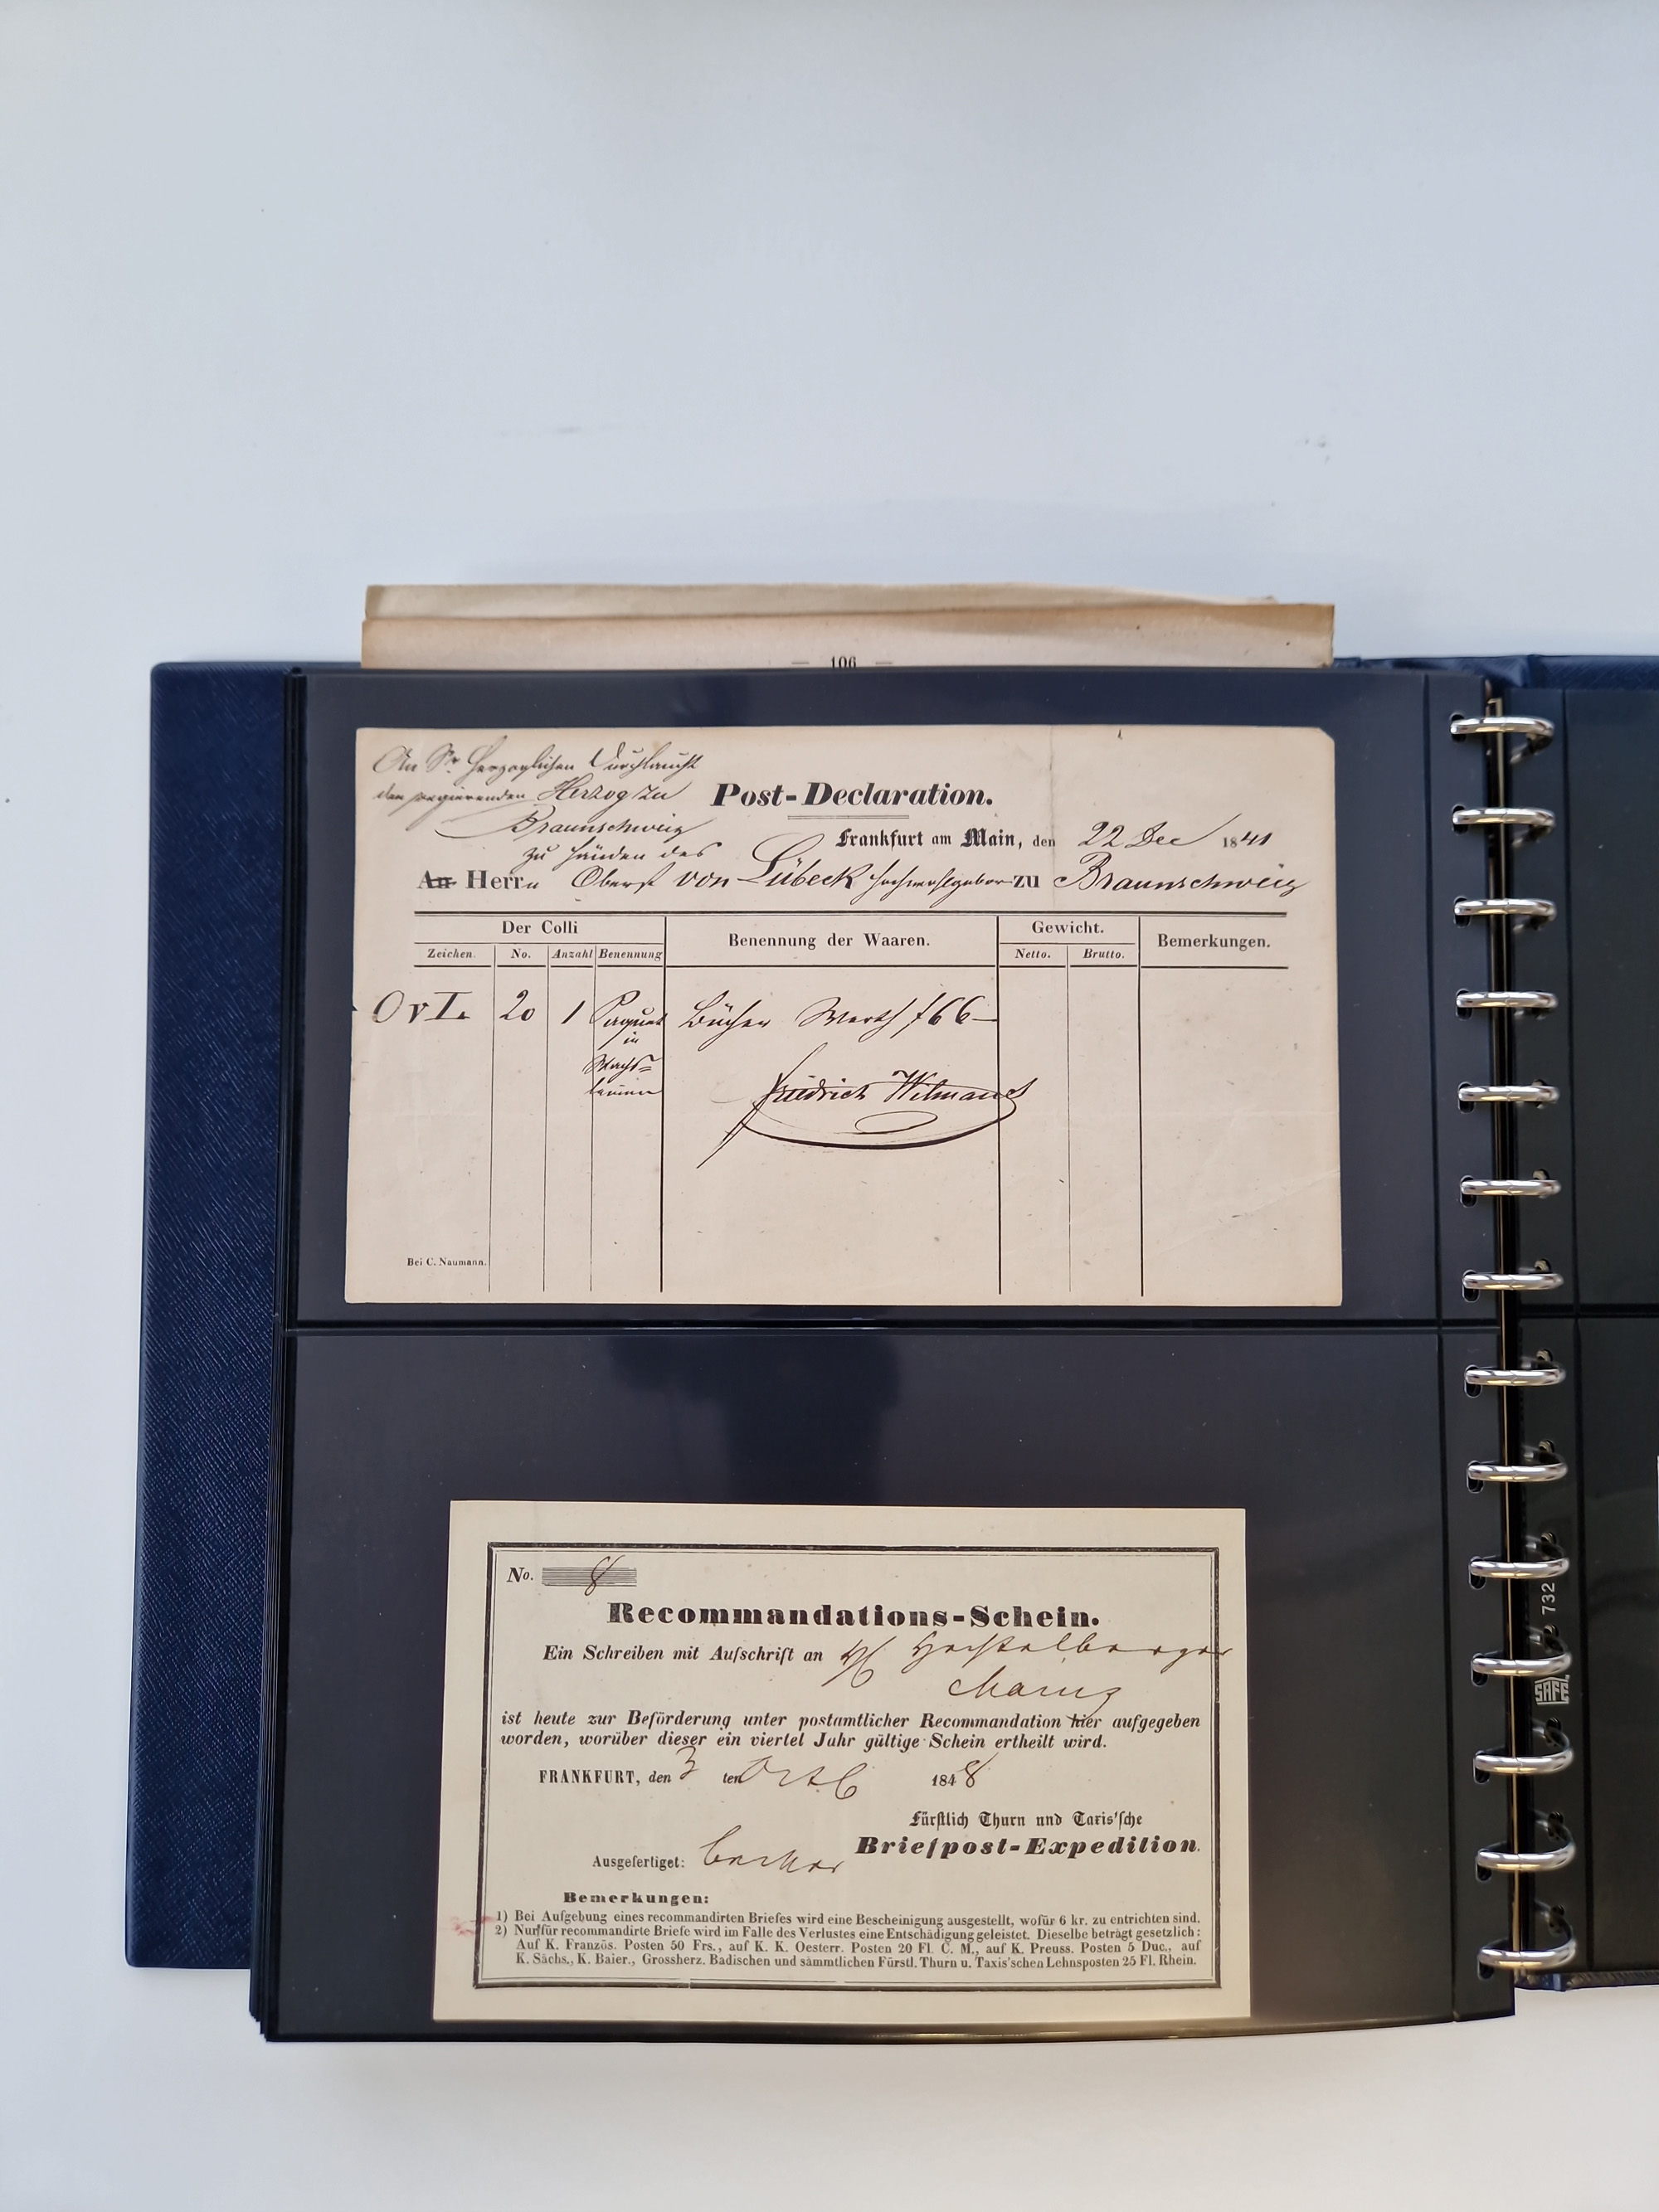 — 106 —
An Sr. Herzoglichen Durchlaucht
den regierenden Herzog zu
Braunschweig
Post-Declaration.
Frankfurt am Main, den 22 Dec 1841
zu Händen des
An Herrn Oberst von Lübeck Hochwohlgeboren zu Braunschweig
Der Colli
Benennung der Waaren.
Gewicht.
Bemerkungen.
Zeichen. No. Anzahl Benennung Netto. Brutto.
OvL. 20 1 Paquet Bücher Werth f 66—
in
Wachs=
leinen
Friedrich Wilmans
Bei C. Naumann.
No. 8
Recommandations-Schein.
Ein Schreiben mit Aufschrift an
Mainz
ist heute zur Beförderung unter postamtlicher Recommandation hier aufgegeben
worden, worüber dieser ein viertel Jahr gültige Schein ertheilt wird.
FRANKFURT, den 3 ten Octb 1848
Fürstlich Thurn und Taxis'sche
Briefpost-Expedition.
Ausgefertiget:
Bemerkungen:
1) Bei Aufgebung eines recommandirten Briefes wird eine Bescheinigung ausgestellt, wofür 6 kr. zu entrichten sind.
2) Nur für recommandirte Briefe wird im Falle des Verlustes eine Entschädigung geleistet. Dieselbe beträgt gesetzlich:
Auf K. Französ. Posten 50 Frs., auf K. K. Oesterr. Posten 20 Fl. C. M., auf K. Preuss. Posten 5 Duc., auf
K. Sächs., K. Baier., Grossherz. Badischen und sämmtlichen Fürstl. Thurn u. Taxis'schen Lehnsposten 25 Fl. Rhein.
732
SAFE